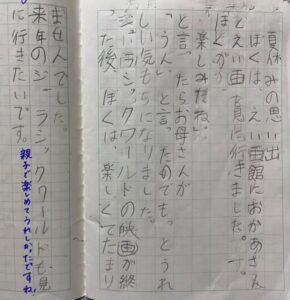 夏休みの思い出
ぼくは、えい画館におかあさん
とえい画を見に行きました。
ぼくが
楽しみだね。」
と言ったらお母さんが
「うん」と言ったのでもっとうれ
しい気もちになりました。
ジュラシックワールドの映画が終
った後、ぼくは、楽しくてたまり
ませんでした。
来年のジュラシックワールドも見
に行きたいです。
親子で楽しめてうれしかったですね!